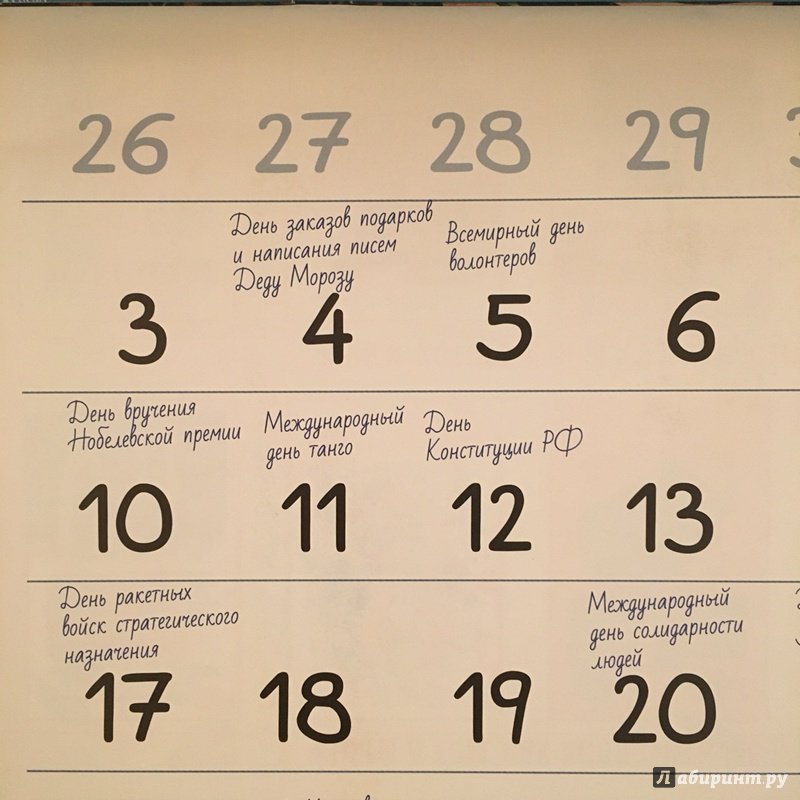 26 27 28 29
День заказов подарков
и написания писем
Деду Морозу
4
Всемирный день
волонтеров
5
3
6
День вручения
Нобелевской премии
10
Международный
день танго
11
День
Конституции РФ
12
13
День ракетных
войск стратегического
назначения
17
18
19
Международный
день солидарности
людей
20
Лабиринт.ру